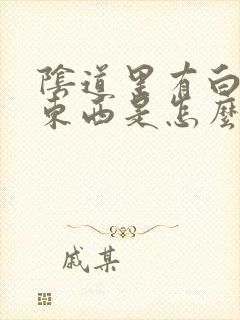 陰道里有白
東西是怎麼
戚某